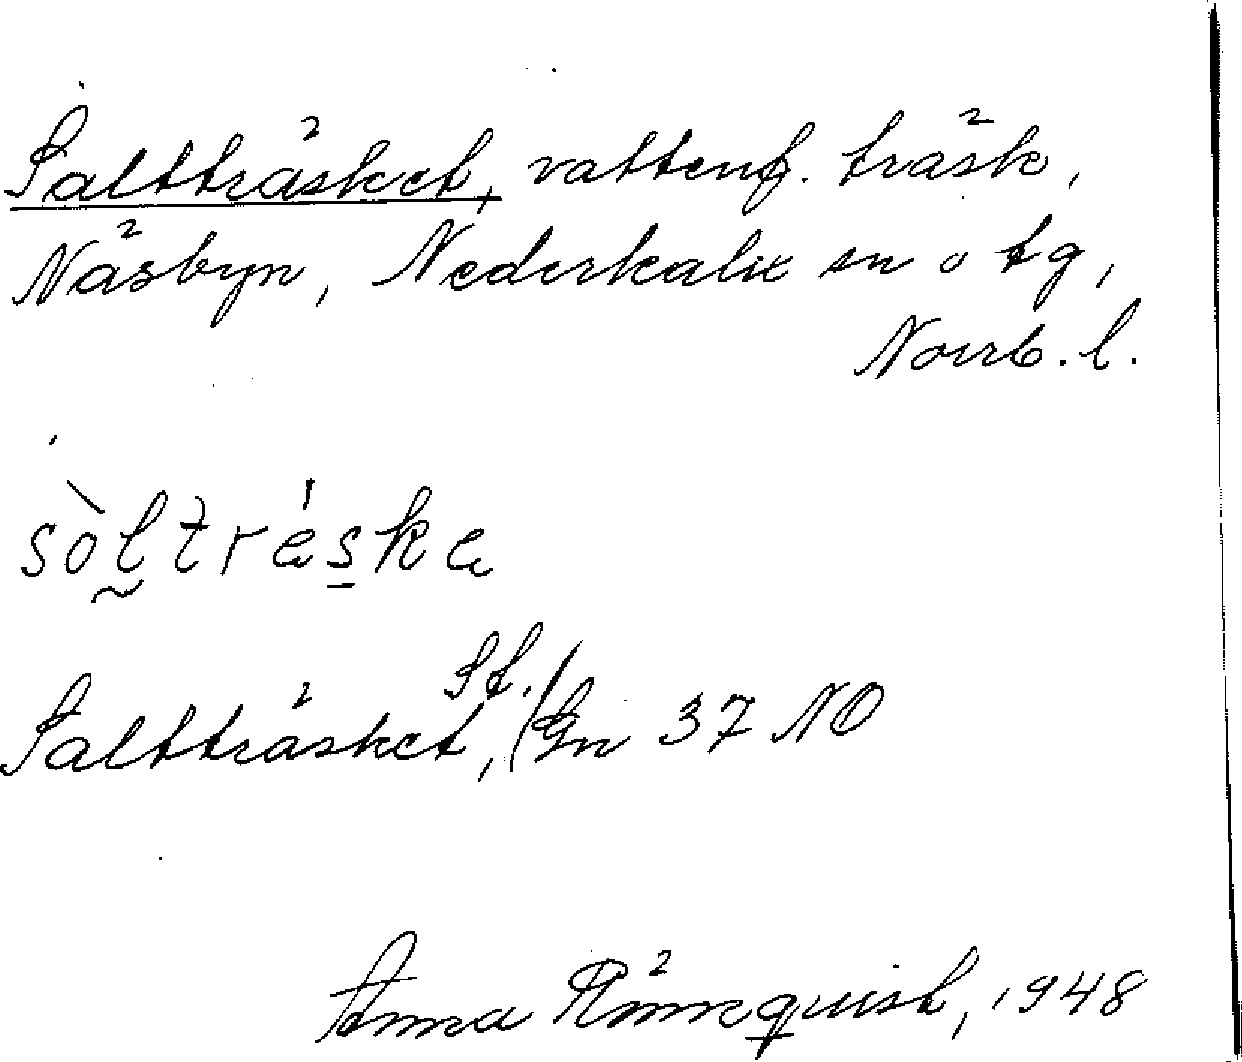 Saltträsket, vattenf. träsk,
Näsbyn, Nederkalix sn o tg,
Norrb. l.
sòl̰trás̱ka
Saltträsket, St. / Gn 37 NO
Anna Rönnquist, 1948